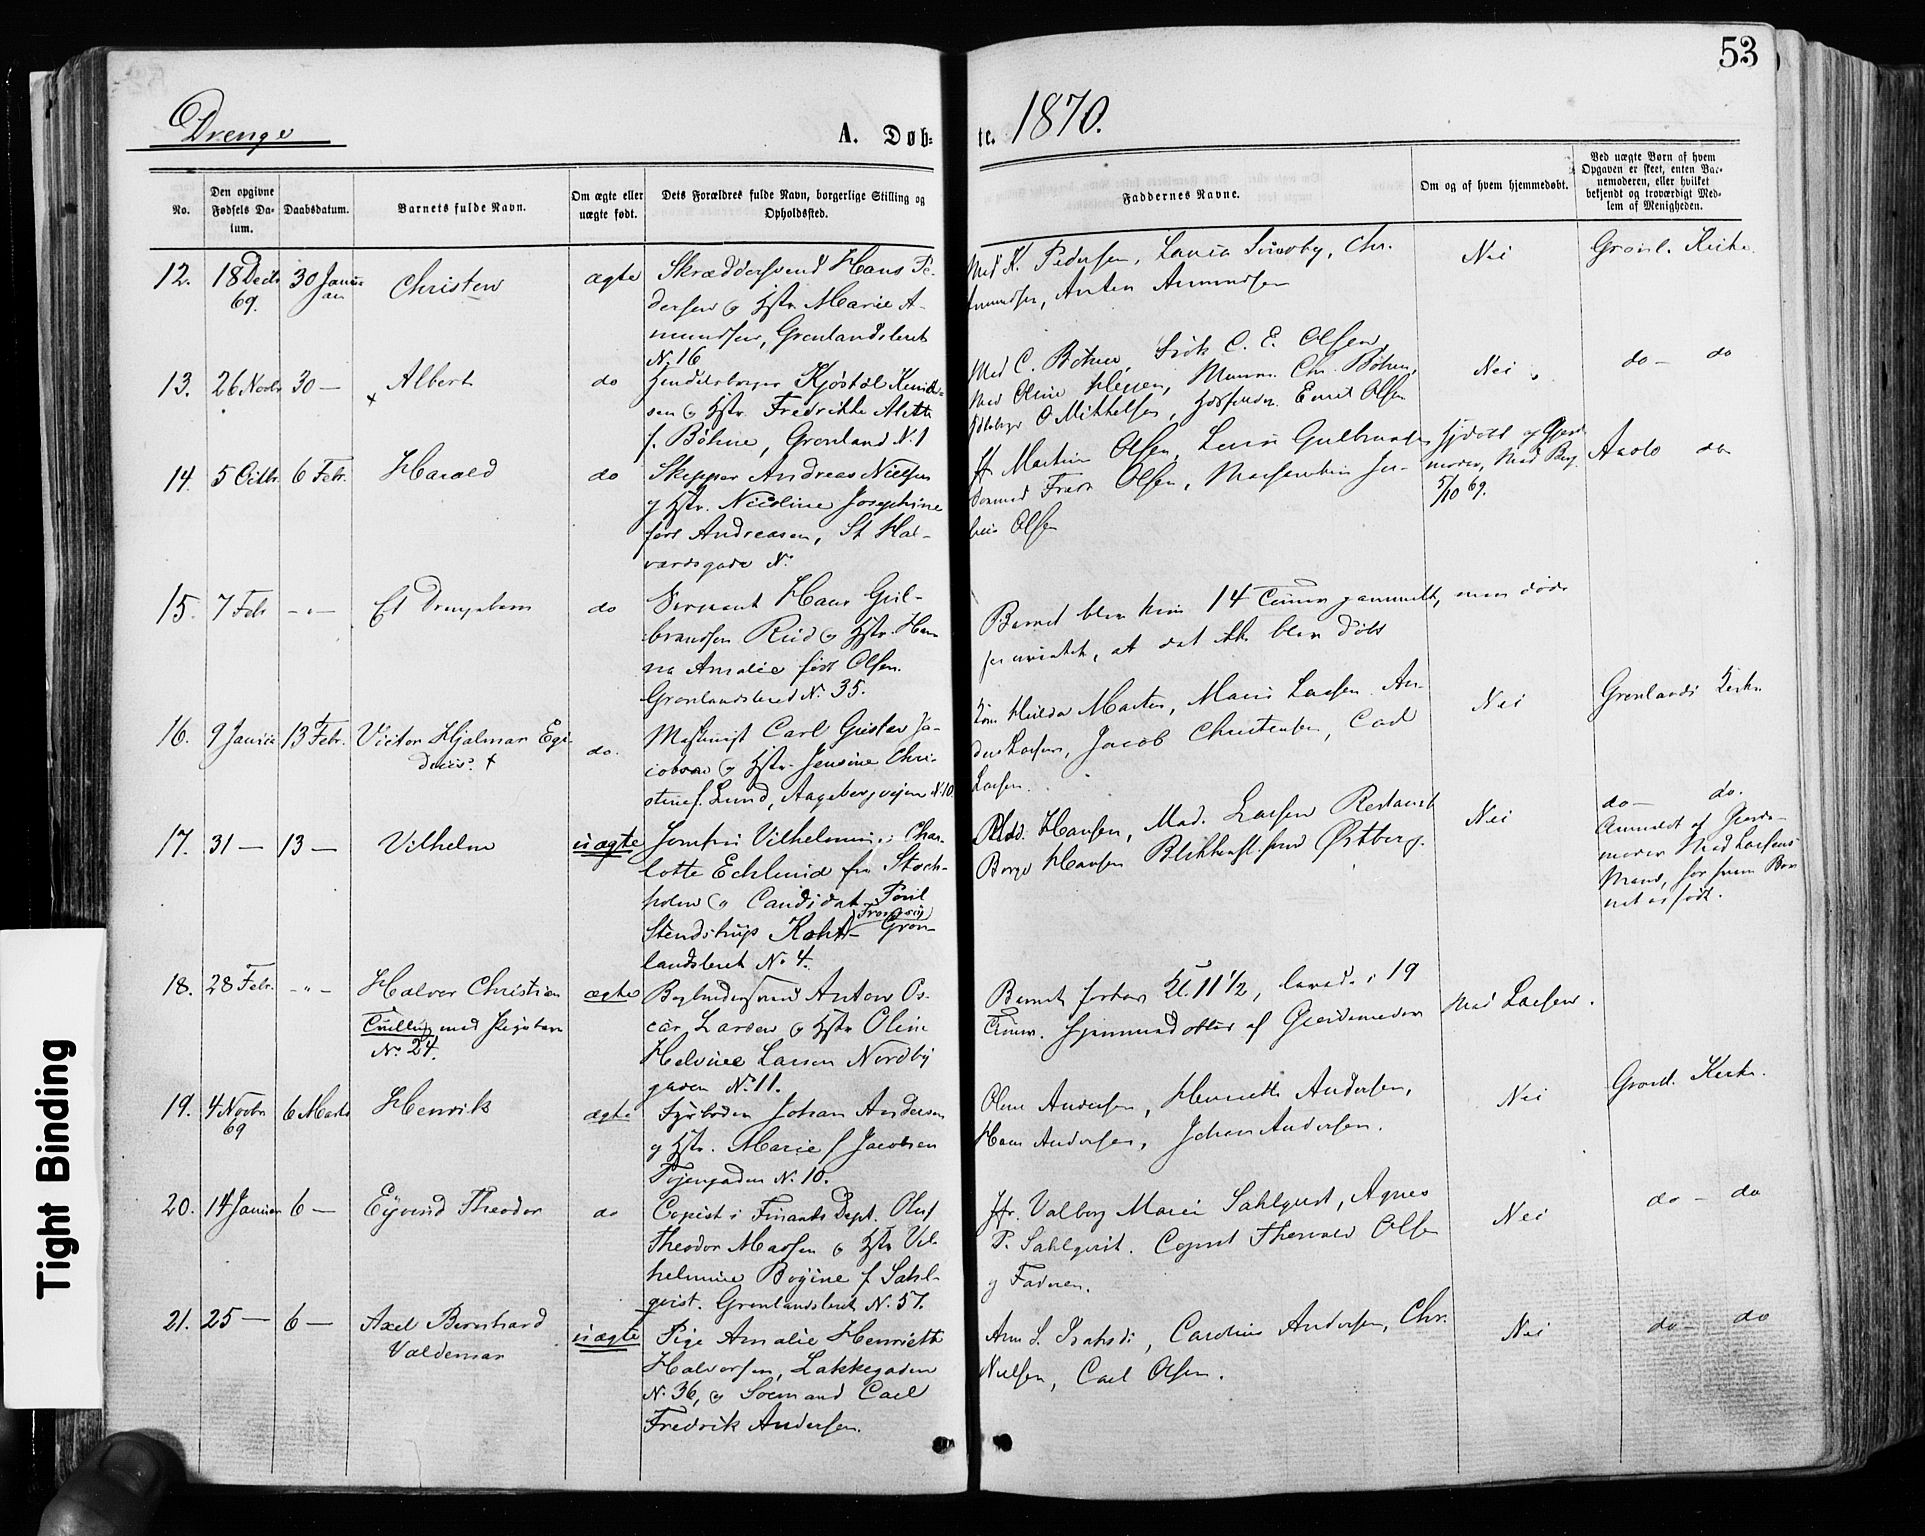 53
Drenge
A. Døb-
te.
1870.
No.
Den opgivne
Fødsels Da-
tum.
Daabsdatum.
Barnets fulde Navn.
Om ægte eller
uægte født.
Dets Forældres fulde Navn, borgerlige Stilling og
Opholdssted.
Faddernes Navne.
Om og af hvem hjemmedøbt.
Ved uægte Børn af hvem
Opgaven er skeet, enten Bar-
nemoderen, eller hvilket
bekjendt og troværdigt Med-
lem af Menigheden.
12.
18 Decbr
69.
30 Janu
ar
Christen
ægte
Skræddersvend Hans Pe-
dersen og Hstr. Marie A-
mundsen, Grønlandsleret
N. 16
Mad K. Pedersen, Laura Sundby, Chr.
Amundsen, Anton Amundsen
Nei
Grønl. Kirke
13.
26 Novbr
30 —
Albert
do
Fredrikke
f. Bøhne, Grønland N. 1
Mad C. Bøhne, C. E. Olsen,
Mad Oline Chr. Bøhne,
O Mikkelsen, Olsen
Nei
do — do
14.
5 Octbr.
6 Febr.
Harald
do
Skipper Andreas Nielsen
og Hstr. Nicoline Josephine
født Andreasen, St. Hal-
vardsgade N.
Jfr Martin Olsen,
Olsen,
Olsen
Hjdøbt af Gjord-
moder, Mad Berg
5/10 69.
do
15.
7 Febr
— " —
Et Drengebarn
do
Sergeant Hans Gul-
brandsen Ruud og Hstr. Han
na Amalie født Olsen.
Grønlandsleret N. 35.
Barnet blev kun 14 Timer gammelt, men døde
, at det ikke blev døbt
16.
9 Januar
13 Febr.
Victor Hjalmar Egi-
dius. +
do.
Maskinist Carl Gustav Ja-
cobsen og Hstr. Jensine Chri-
stine f. Lund, Aagebergveien N. 10.
Hulda Marten, Marie Larsen. An-
ders Larsen, Jacob Christensen, Carl
Larsen.
Nei
Grønlands Kirke
17.
31 —
13 —
Vilhelm
uægte
Jomfru Vilhelmine Char-
lotte Ecklund fra Stock-
holm og Candidat Poul
Stendstrup Koht — Grøn-
Tromsø
landsleret No 4.
Mad. Hansen, Mad. Larsen
Hansen Østberg.
Nei
do — do.
Anmeldt af Gjord-
moder Mad Larsens
Mand, for hvem Bar
net er født.
18.
28 Febr.
— " —
Halvor Christian
Tvilling med Pigebarn
No. 24.
ægte
Bogbindersvend Anton Os-
car Larsen og Hstr Oline
Helvine Larsen Nordby
gaden No. 11.
Barnet Kl. 11 1/2, levede i 19
Timer. Hjemmedøbt af Gjordemoder
Mad Larsen.
19.
4 Novbr
69
6 Marts
Henrik
ægte
Fyrbøder Johan Andersen
og Hstr. Marie f Jacobsen
Tøiengaden N. 10.
Olene Andersen, Henriette Andersen,
Hans Andersen, Johan Andersen.
Nei
Grønl. Kirke.
20.
14 Januar
6 —
Eyvind Theodor
do
Copist i Finants Dept. Oluf
Theodor Madsen og Hstr Vil-
helmine Bogine f. Sahl-
qvist. Grønlandsleret N. 57.
Jfr. Valborg Marie Sahlqvist, Agnes
P. Sahlqvist. Copist Thorvald Olsen
og Faderen.
Nei
do — do
21.
25 —
6 —
Axel Bernhard
Valdemar
uægte
Pige Amalie Henriette
Halvorsen, Lakkegaden
N. 36, og Sømand Carl
Fredrik Andersen.
Andersen, Chr.
Nielsen, Carl Olsen.
Nei
do — do
Tight Binding